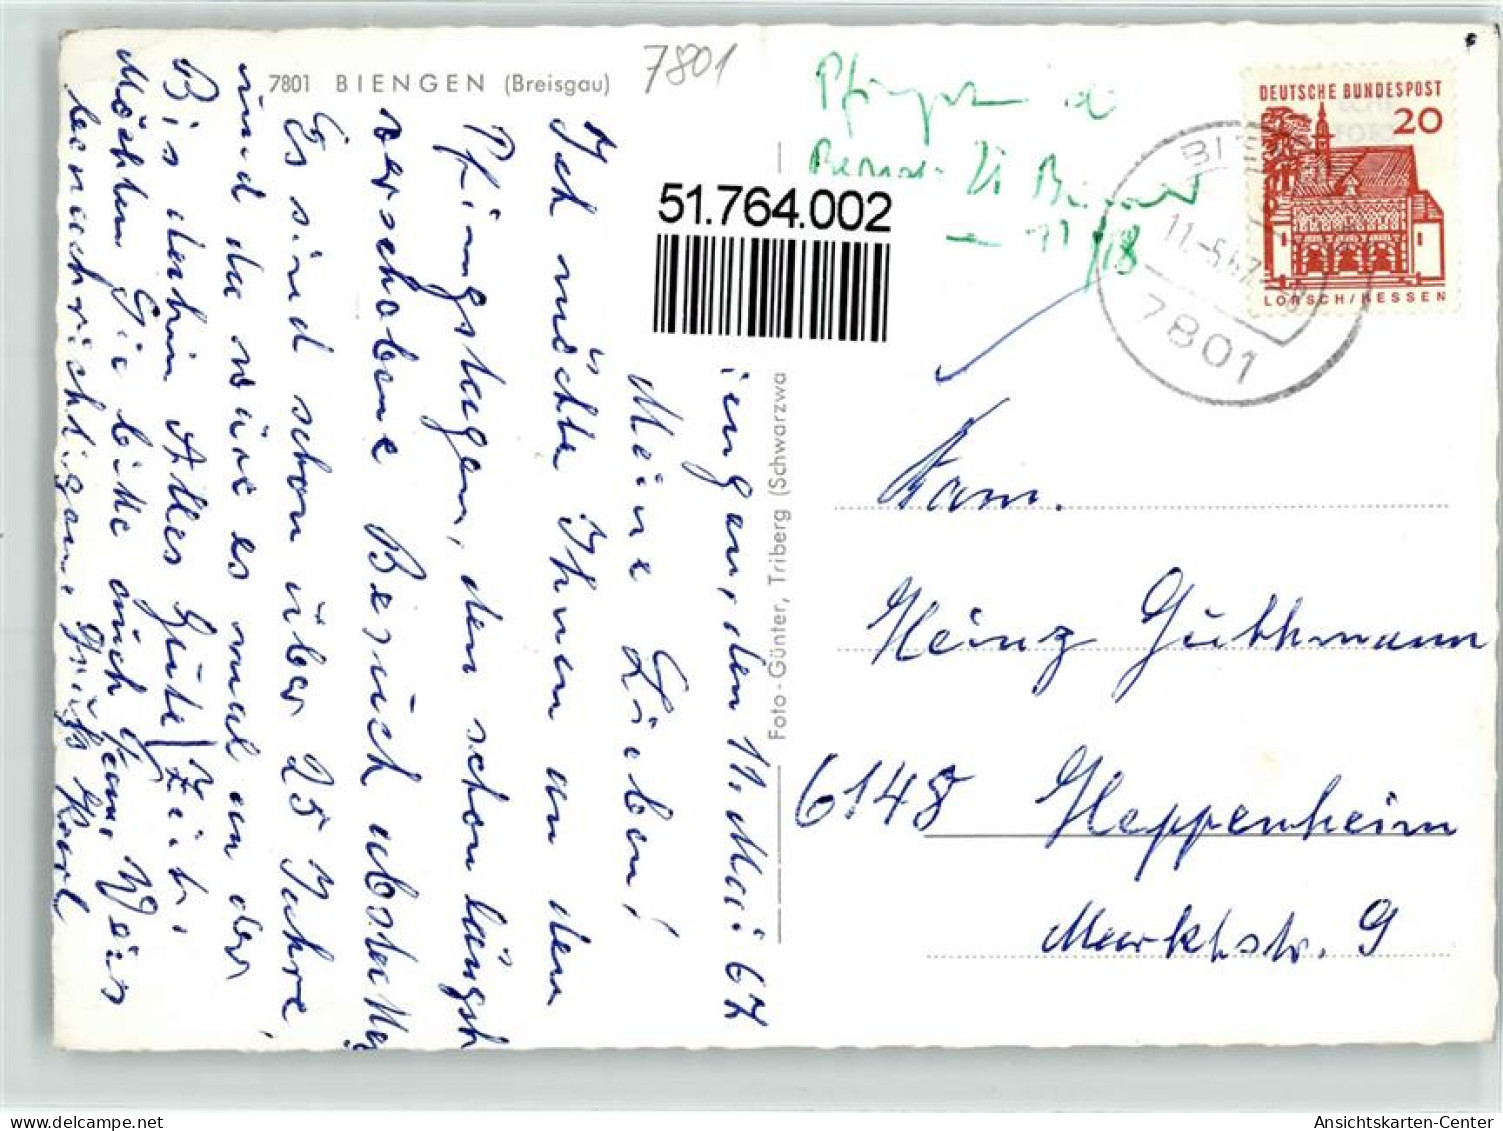 7801 BIENGEN (Breisgau)
7801
51.764.002
Foto-Günter, Triberg (Schwarzwa
DEUTSCHE BUNDESPOST
20
LORSCH/HESSEN
11.-5.67
7801
den 11. Mai 67
Meine Lieben!
Ich möchte Ihnen an den
Pfingstagen, den schon längst
verschobene Besuch abstatten
Es sind schon über 25 Jahre,
und da wäre es mal an der
Bis dahin Alles Gute / Zeit.
Möchten Sie bitte auch Fam. Weis
benachrichtigen. Grüß Karl
Fam.
Heinz Guthmann
6148 Heppenheim
Marktstr. 9
Ansichtskarten-Center